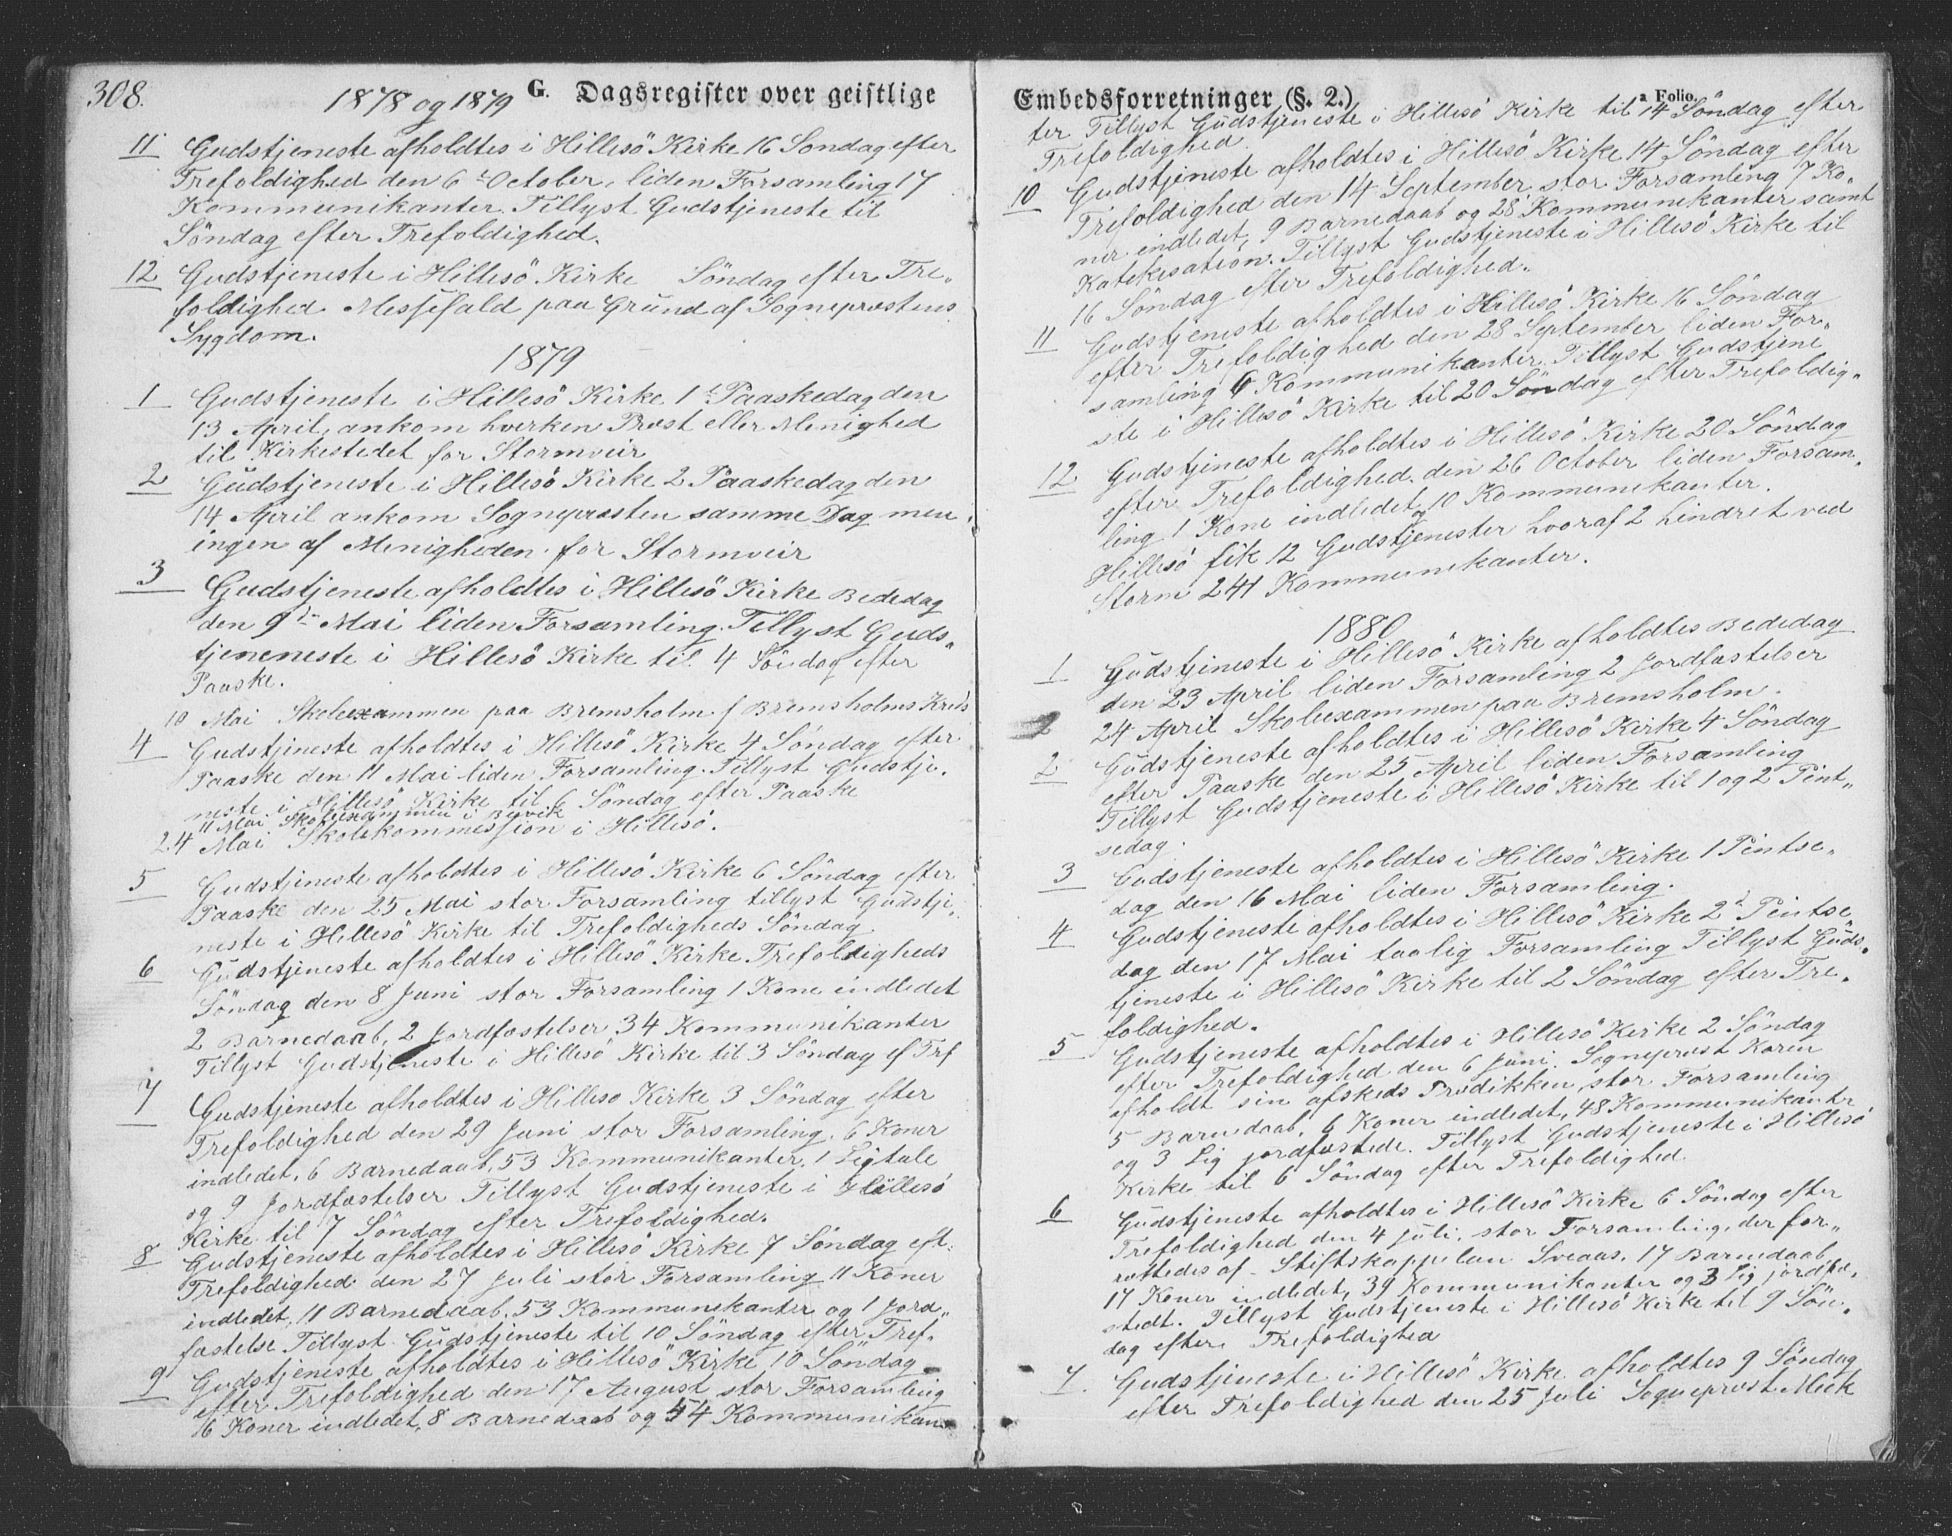 308.
1878 og 1879
G. Dagsregister over geistlige
11 Gudstjeneste afholdtes i Hillesö Kirke 16 Söndag efter
Trefoldighed den 6te October, liden Forsamling 17
Kommunikanter. Tillyst Gudstjeneste til
Söndag efter Trefoldighed.
12 Gudstjeneste i Hillesö Kirke Söndag efter Tre„
foldighed Messefald paa Grund af Sogneprestens
Sygdom.
1879
1 Gudstjeneste i Hillesö Kirke 1ste Paaskedag den
13 April, ankom hverken Prest eller Menighed
til Kirkestedet for Stormveir
2 Gudstjeneste i Hillesö Kirke 2 Paaskedag den
14 April ankom Sognepresten samme Dag men
ingen af Menigheden for Stormveir
3 Gudstjeneste afholdtes i Hillesö Kirke Bededag
den 9de Mai liden Forsamling. Tillyst Guds„
tjeneneste i Hillesö Kirke til 4 Söndag efter
Paaske.
10 Mai Skoleexammen paa Bremsholm f Bremsholms Kreds
4 Gudstjeneste afholdtes i Hillesö Kirke 4 Söndag efter
Paaske den 11 Mai liden Forsamling. Tillyst Gudstje„
neste i Hillesö Kirke til 6 Söndag efter Paaske
11 Mai Skolexammen i Bovik
24 Mai Skolekommession i Hillesö.
5 Gudstjeneste afholdtes i Hillesö Kirke 6 Söndag efter
Paaske den 25 Mai stor Forsamling tillyst Gudstje„
neste i Hillesö Kirke til Trefoldigheds Söndag
6 Gudstjeneste afholdtes i Hillesö Kirke Trefoldigheds
Söndag den 8 Juni stor Forsamling 1 Kone indledet
2 Barnedaab, 2 Jordfæstelser 34 Kommunikanter
Tillyst Gudstjeneste i Hillesö Kirke til 3 Söndag ef Trf
7 Gudstjeneste afholdtes i Hilleso Kirke 3 Söndag efter
Trefoldighed den 29 Juni stor Forsamling. 6 Koner
indledet, 6 Barnedaab, 53 Kommunikanter, 1 Ligtale
og 9 Jordfæstelser Tillyst Gudstjeneste i Hillesö
Kirke til 7 Söndag efter Trefoldighed.
8 Gudstjeneste afholdtes i Hillesö Kirke 7 Söndag eft.
Trefoldighed den 27 Juli stor Forsamling 11 Koner
indledet, 11 Barnedaab, 53 Kommunekanter og 1 Jord„
fæstelse Tillyst Gudstjeneste til 10 Söndag efter Tref.
9 Gudstjeneste afholdtes i Hillesö Kirke 10 Söndag
efter Trefoldighed den 17 August stor Forsamling
16 Koner indledet, 8 Barnedaab og 54 Kommunikan„
Embedsforretninger (§. 2.)
a Folio.
ter Tillyst Gudstjeneste i Hillesö Kirke til 14 Söndag efter
Trefoldighed.
10 Gudstjeneste afholdtes i Hillesö Kirke 14 Söndag efter
Trefoldighed den 14 September stor Forsamling 7 Ko„
ner indledet, 9 Barnedaab og 28 Kommunekanter samt
Katekisation. Tillyst Gudstjeneste i Hillesö Kirke til
16 Söndag efter Trefoldighed.
11 Gudstjeneste afholdtes i Hillesö Kirke 16 Söndag
efter Trefoldighed den 28 September liden For„
samling 6 Kommunikanter. Tillyst Gudstjene
ste i Hillesö Kirke til 20 Söndag efter Trefoldig„
12 Gudstjeneste afholdtes i Hillesö Kirke 20 Söndag
efter Trefoldighed den 26 October liden Forsam„
ling 1 Kone indledet og 10 Kommunekanter.
Hillesö fik 12 Gudstjenester hvoraf 2 hindret ved
Storm 241 Kommunekanter.
1880
1 Gudstjeneste i Hillesö Kirke afholdtes Bededag
den 23 April liden Forsamling 2 Jordfæstelser
24 April Skoleexammen paa Bremsholm.
2 Gudstjeneste afholdtes i Hillesö Kirke 4 Söndag
efter Paaske den 25 April liden Forsamling
Tillyst Gudstjeneste i Hillesö Kirke til 1 og 2 Pint„
sedag.
3 Gudstjeneste afholdtes i Hillesö Kirke 1 Pintse„
dag den 16 Mai liden Forsamling.
4 Gudstjeneste afholdtes i Hillesö Kirke 2d Pintse„
dag den 17 Mai taalig Forsamling Tillyst Guds„
tjeneste i Hillesö Kirke til 2 Söndag efter Tre„
foldighed.
5 Gudstjeneste afholdtes i Hillesö Kirke 2 Söndag
efter Trefoldighed den 6 Juni. Sogneprest Koren
afholdt sin afskeds Predikken, stor Forsamling
5 Barnedaab, 6 Koner indledet, 48 Kommunikanter
og 3 Lig jordfæstede. Tillyst Gudstjeneste i Hillesö
Kirke til 6 Söndag efter Trefoldighed.
6 Gudstjeneste afholdtes i Hillesö Kirke 6 Söndag efter
Trefoldighed den 4 Juli, stor Forsamling, der for„
rettedes af Stiftskappelan Sveaas. 17 Barnedaab,
17 Koner indledet, 39 Kommunikanter og 3 Lig jordfæ„
stedt. Tillyst Gudstjeneste i Hillesö Kirke til 9 Sön„
dag efter Trefoldighed
7. Gudstjeneste i Hillesö Kirke afholdtes 9 Söndag
efter Trefoldighed den 25 Juli Sogneprest Mick